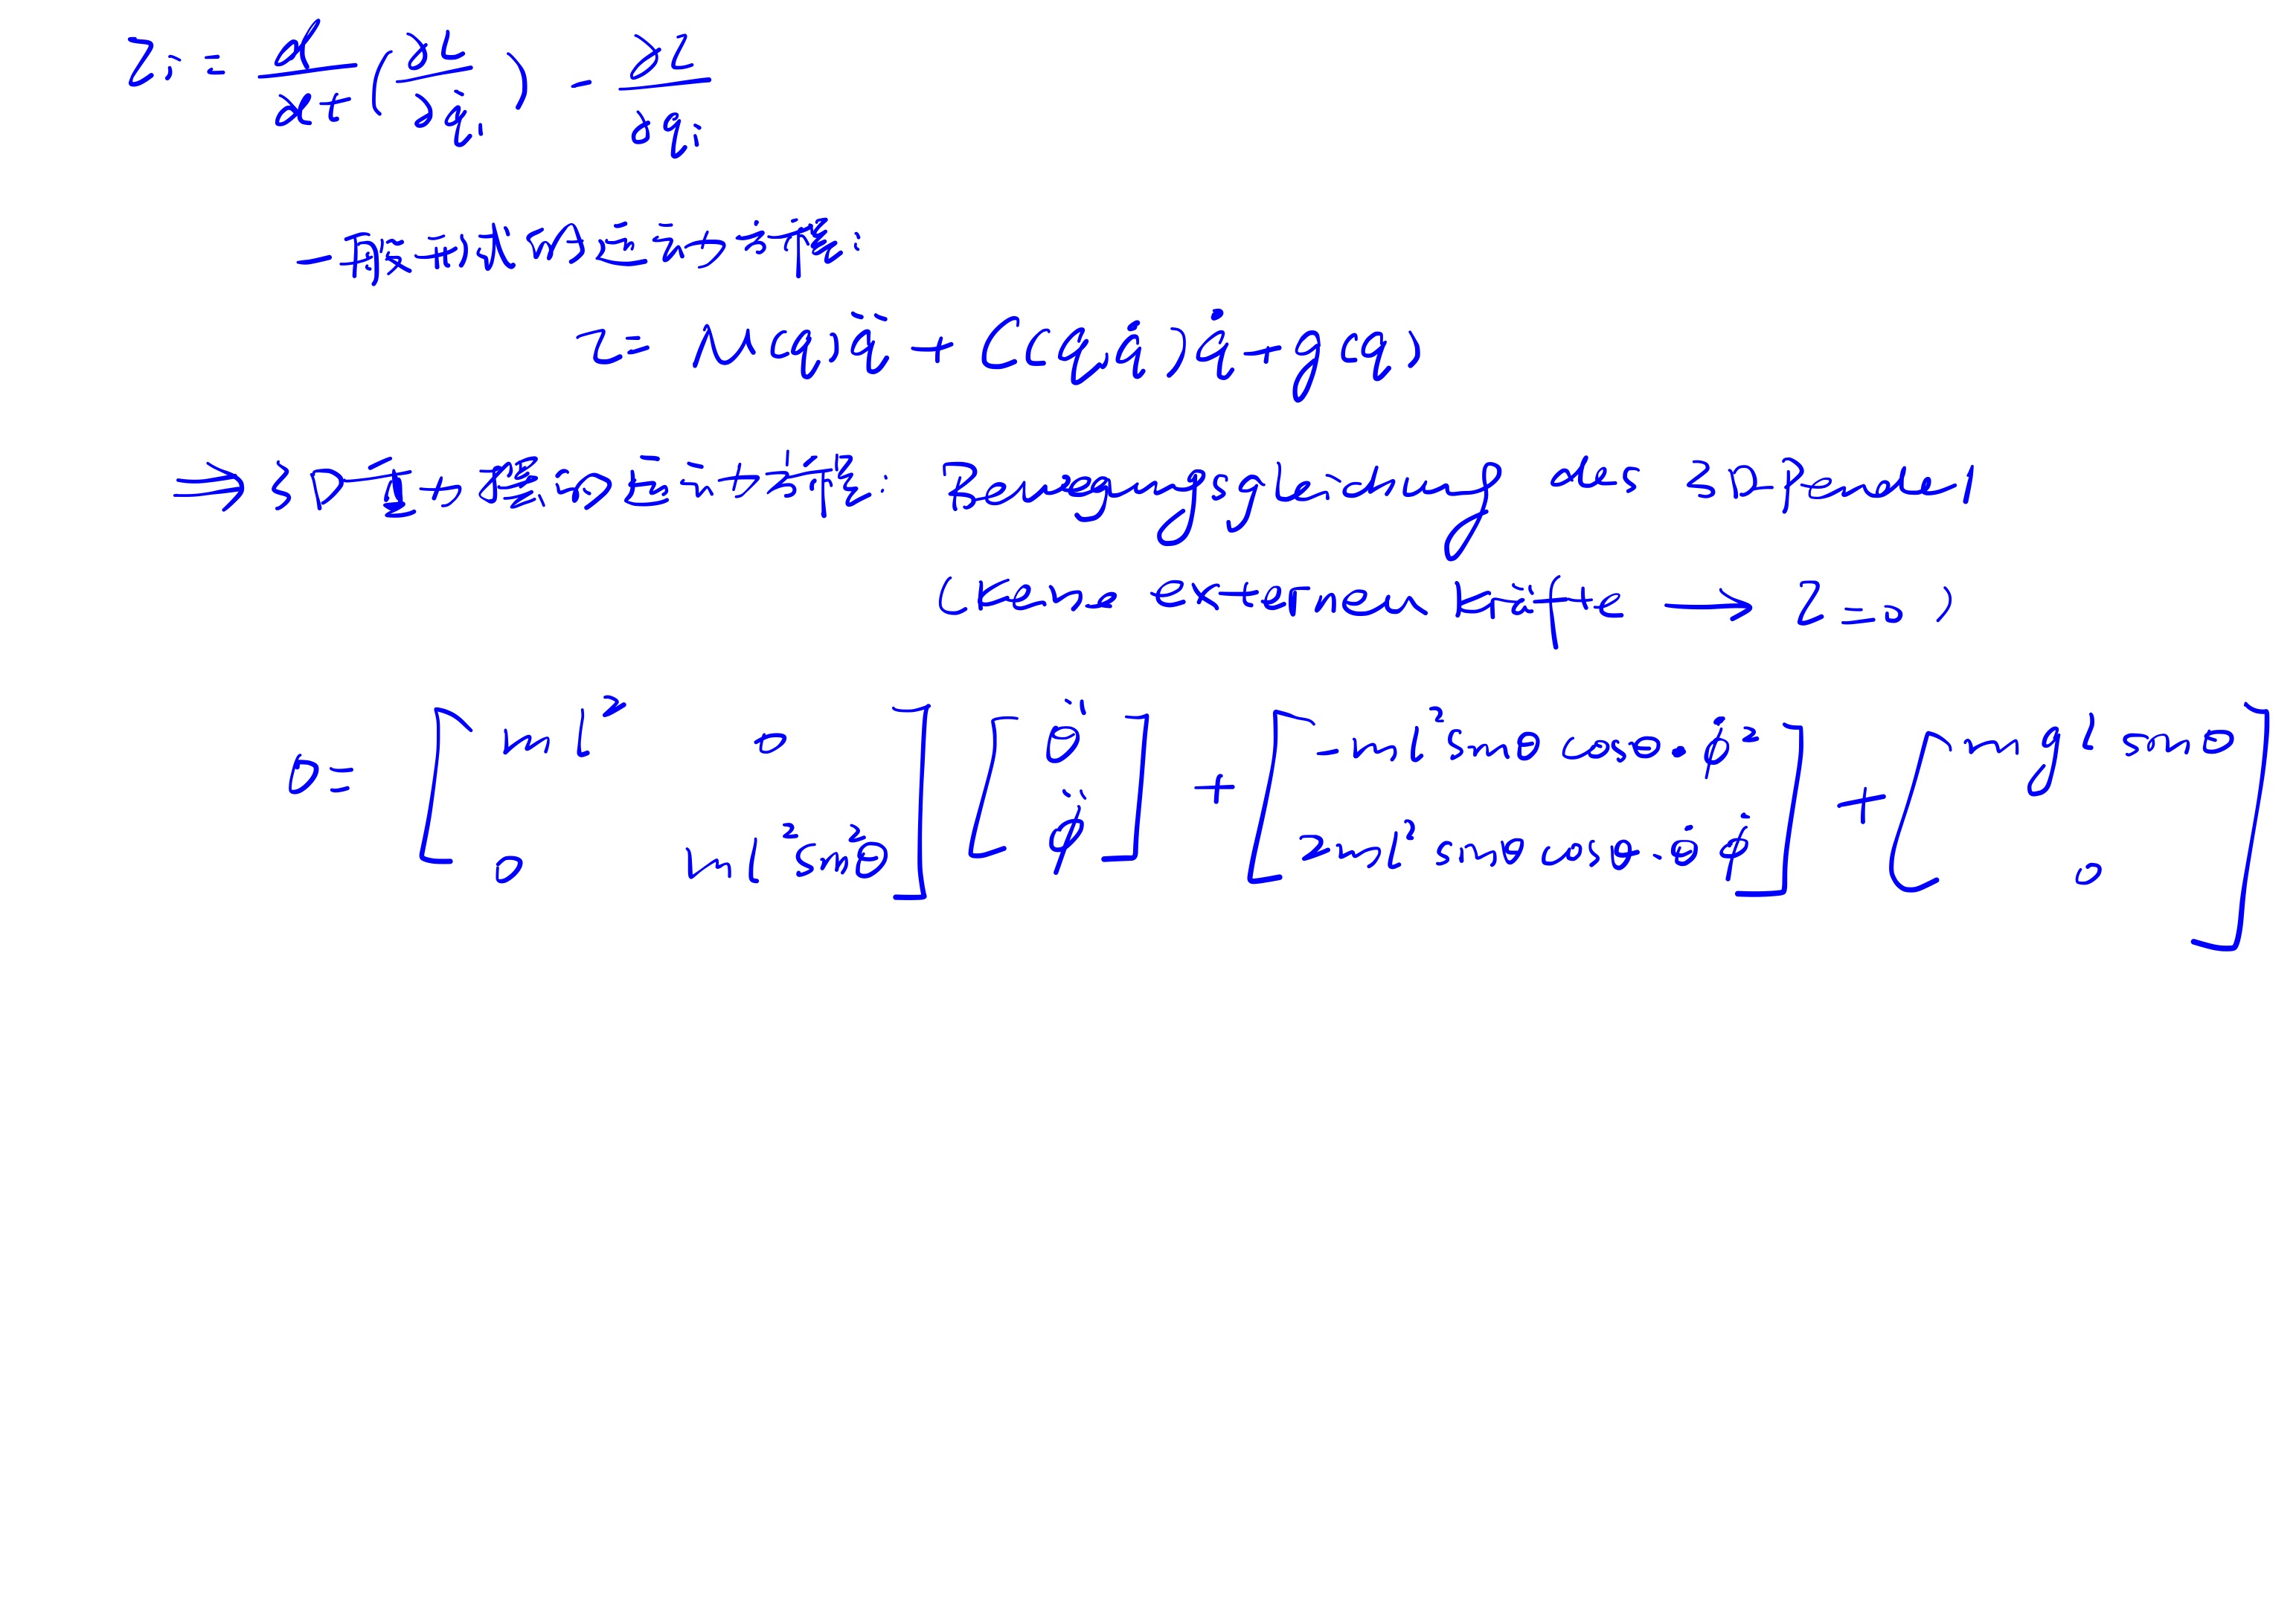 τᵢ = d/dt (∂L/∂q̇ᵢ) - ∂L/∂qᵢ
一般形式的运动方程:
τ = M(q)q̈ + C(q,q̇)q̇ + g(q)
⇒ 3D重力摆的运动方程: Bewegungsgleichung des 3D-Pendel
(Keine externen Kräfte → τ=0)
0 = [ml² 0; 0 ml²sin²θ] [θ̈; φ̈] + [-ml²sinθcosθ·φ̇²; 2ml²sinθcosθ·θ̇φ̇] + [mglsinθ; 0]